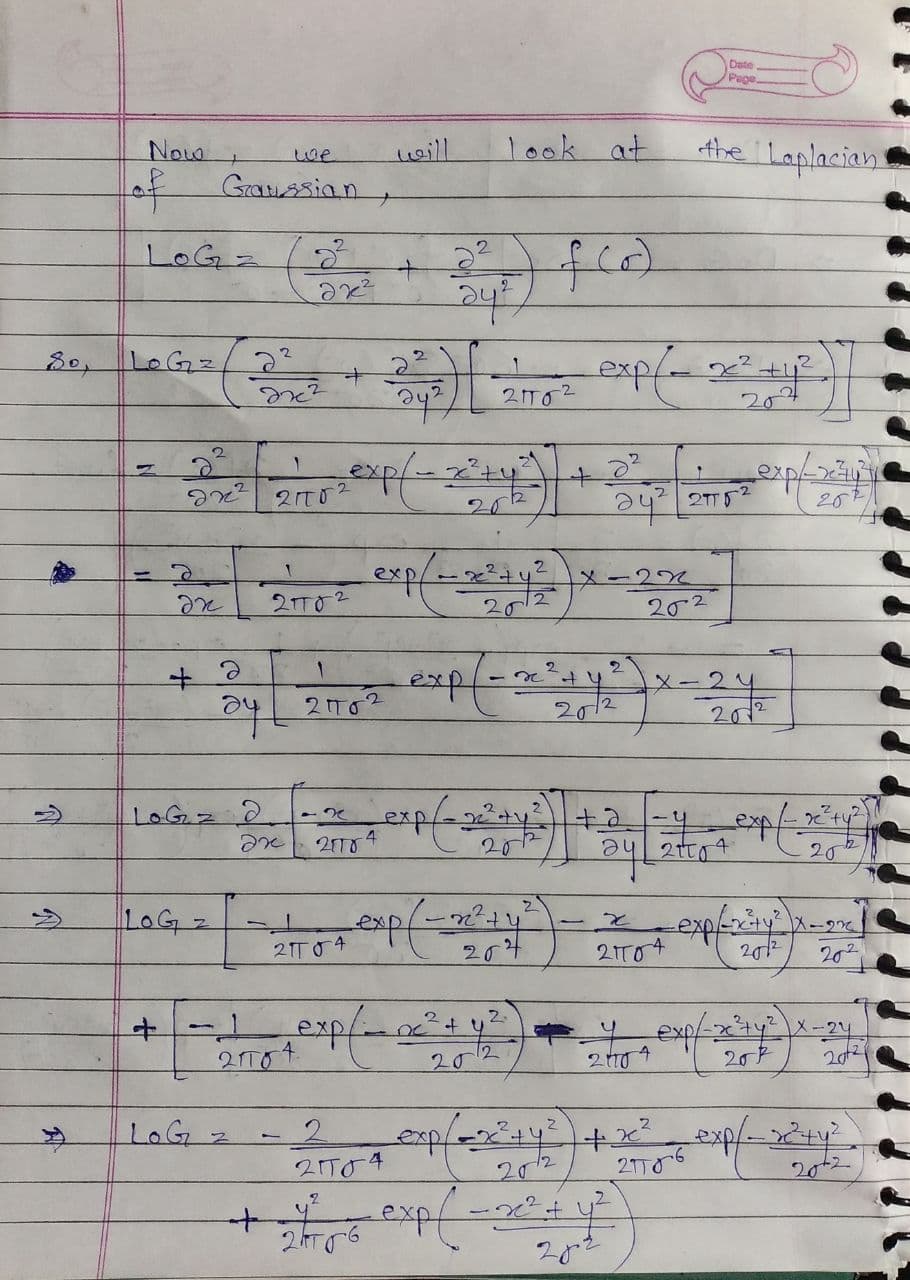 Date
Page
Now, we will look at the Laplacian
of Gaussian,
LoG = (∂²/∂x² + ∂²/∂y²) f(σ)
So, LoG = (∂²/∂x² + ∂²/∂y²) [1/2πσ² exp(- x²+y²/2σ²)]
= ∂²/∂x² [1/2πσ² exp(- x²+y²/2σ²)] + ∂²/∂y² [1/2πσ² exp(-x²+y²/2σ²)]
= ∂/∂x [1/2πσ² exp(-x²+y²/2σ²) x -2x/2σ²]
+ ∂/∂y [1/2πσ² exp(-x²+y²/2σ²) x -2y/2σ²]
⇒ LoG = ∂/∂x [-x/2πσ⁴ exp(-x²+y²/2σ²)] + ∂/∂y [-y/2πσ⁴ exp(-x²+y²/2σ²)]
⇒ LoG = [-1/2πσ⁴ exp(-x²+y²/2σ²) - x/2πσ⁴ exp(-x²+y²/2σ²) x -2x/2σ²]
+ [-1/2πσ⁴ exp(-x²+y²/2σ²) - y/2πσ⁴ exp(-x²+y²/2σ²) x -2y/2σ²]
⇒ LoG = -2/2πσ⁴ exp(-x²+y²/2σ²) + x²/2πσ⁶ exp(-x²+y²/2σ²)
+ y²/2πσ⁶ exp(-x²+y²/2σ²)